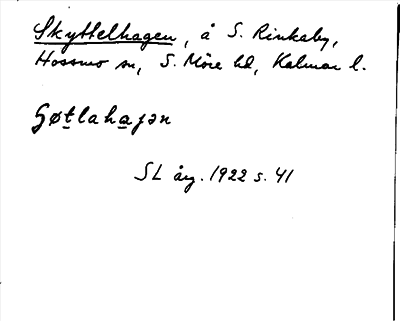 Skyttelhagen, å S. Rinkaby,
Hossmo sn, S. Möre hd, Kalmar l.
ʃøt̲laha̲gən
SL årg. 1922 s. 41